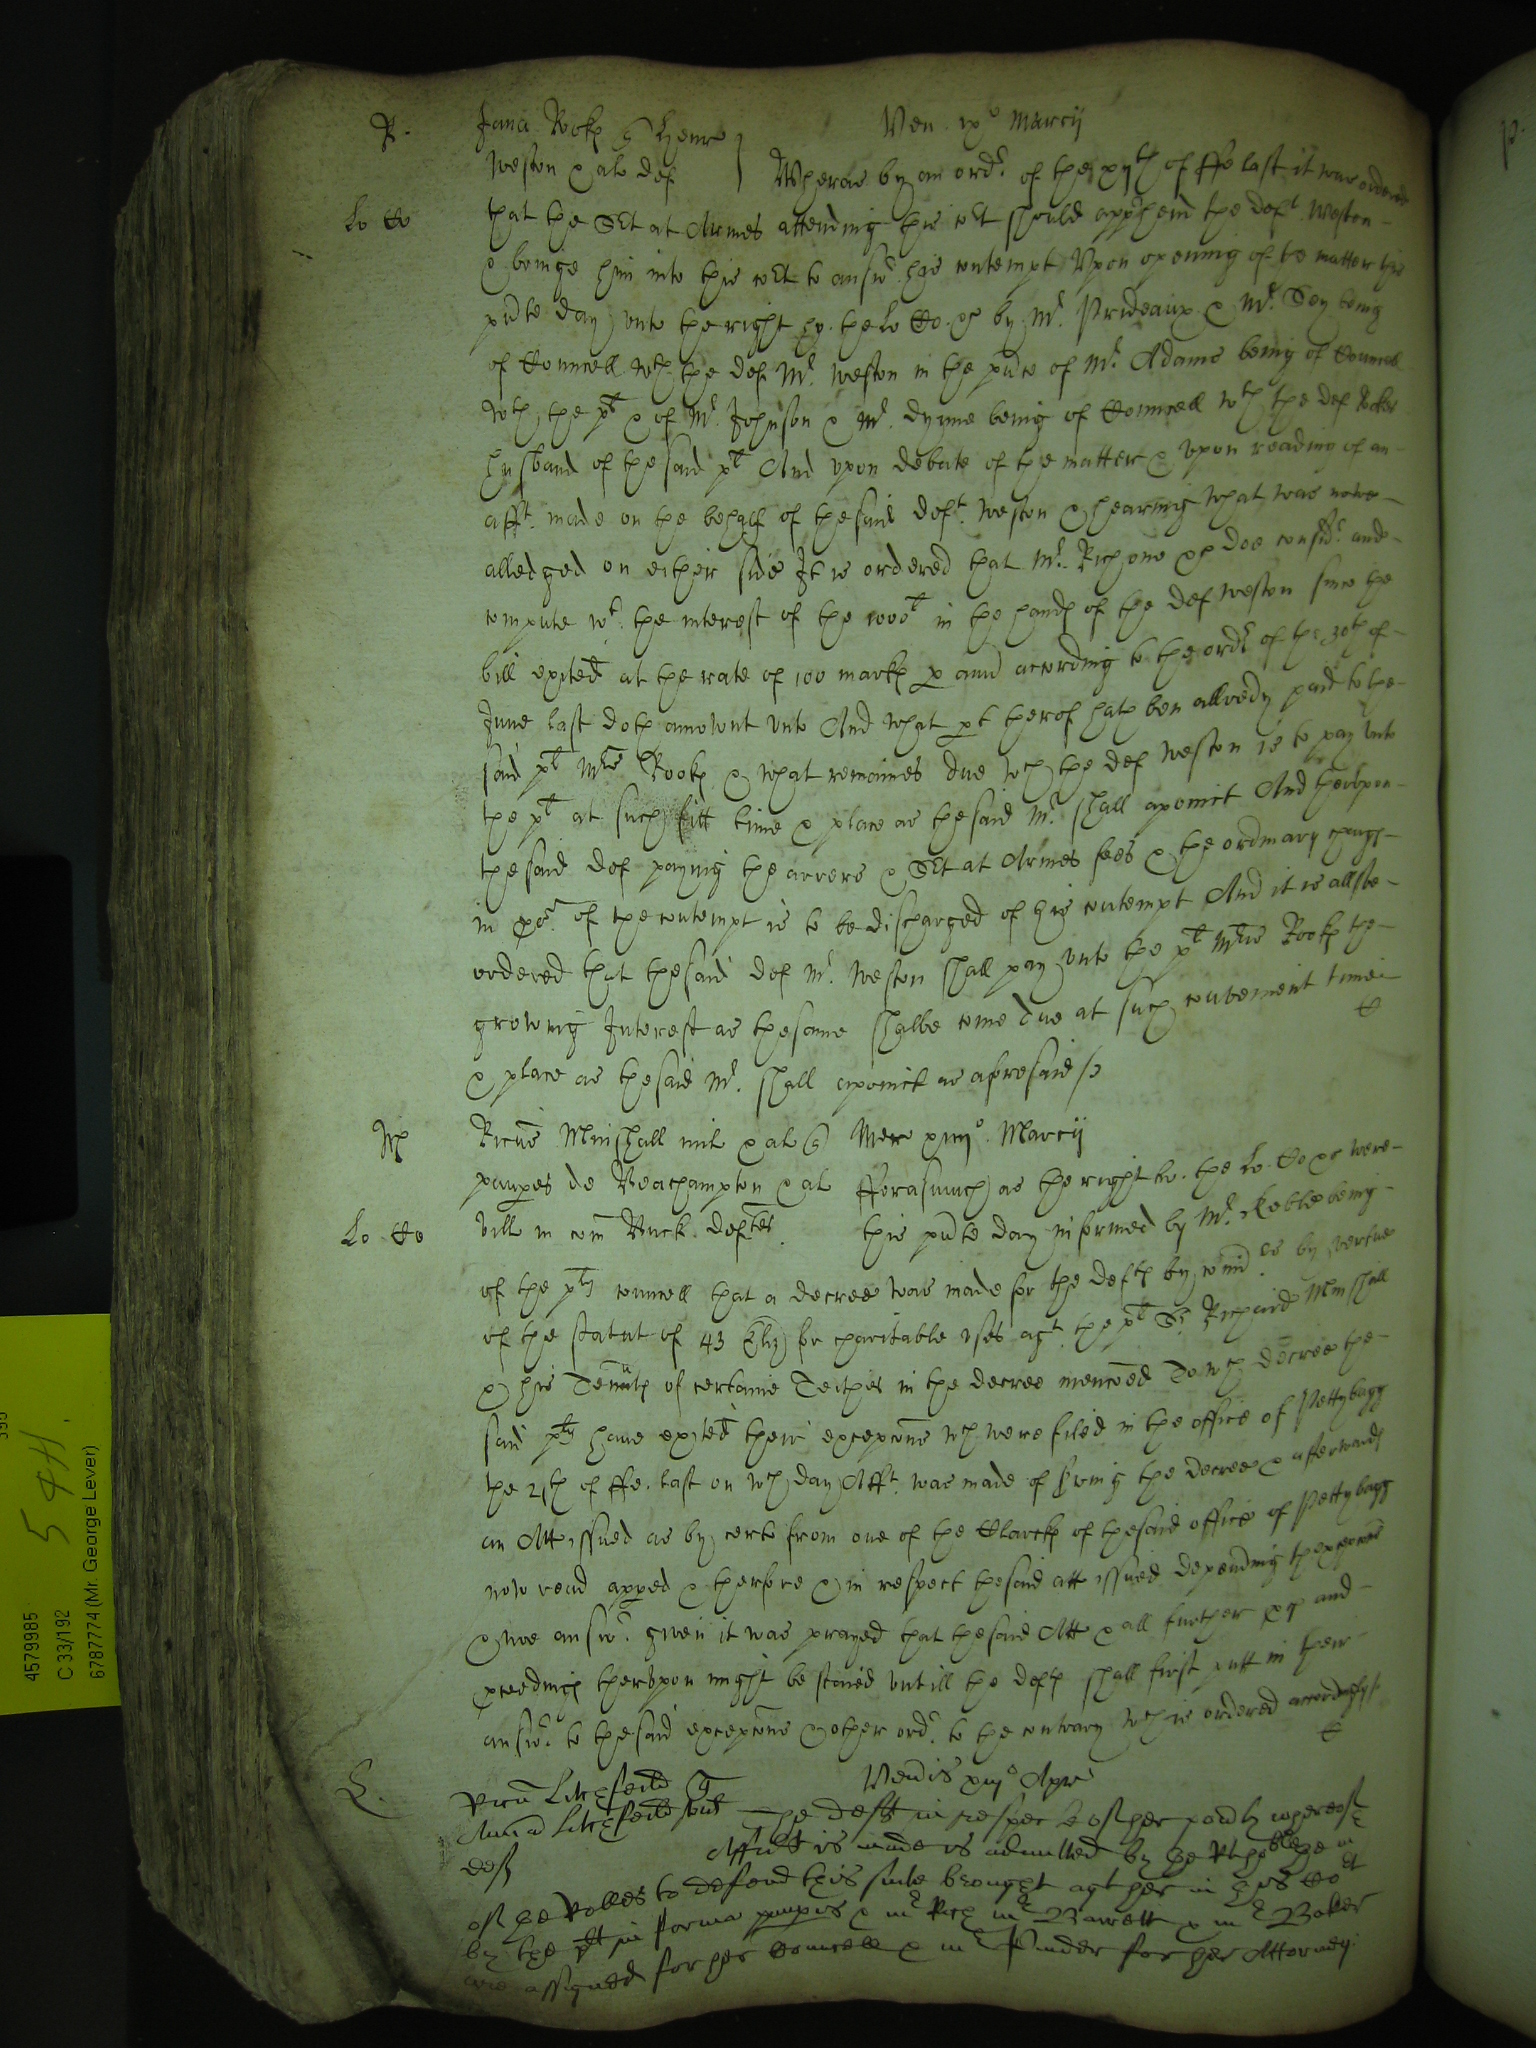 R. Jana Rookes q Henr Ven. ix° Marcij
Weston & alo def Wheras by an ordr. of the xijth of ffe last it was ordered
Lo Co that the Srt at Armes attending this cort should apprhend the deft. Weston
& bringe him into this cort to answr. his contempt Upon opening of the matter this
pnte day unto the right ho. the Lo Co. &c by Mr. Prideaux & Mr. Sey being
of Councell wth the def Mr. Weston in the pnce of Mr. Adams being of Councell
wth the plt & of Mr. Johnson & Mr. Dynne being of Councell wth the def Rookes
husband of the said plt And upon debate of the matter & upon reading of an
afft. made on the behalf of the said deft. Weston & hearing what was nowe
alledged on either side It is ordered that Mr. Rich one &c doe considr. and
compute wt. the interest of the 1000l in the hands of the def Weston since the
bill exited at the rate of 100 markes p ann according to the ordr of the 30th of
June last doth amownt unto And what pt therof hath ben allredy paid to the
said plt Mris Rookes & what remaines due wch the def Weston is to pay unto
the plt at such fitt time & place as the said Mr. shall apoint And therupon
the said def paying the arrers & Srt at Armes fees & the ordinary charges
in pos. of the contempt is to be discharged of his contempt And it is allsoe
ordered that the said def Mr. Weston shall pay unto the plt Mris Rookes the
growing Interest as the same shalbe come due at such convenient time
& place as the said Mr. shall apoint as aforesaid
M Ricus Minshall mil & al q Mer xiiij°. Marcij
pauperes de Beachampton & al fforasmuch as the right ho. the Lo. Co &c were
Lo Co vill in com Buck. deftes. this pnte day informed by Mr. Keeble being
of the plts councell that a decree was made for the defts by comrs by vertue
of the statut of 43 Eliz for charitable uses agt. the plt Sr. Richard Minshall
& his Tennts of certaine Teithes in the decree menconed To wch decree the
said plts have exited their excepcons wch were filed in the office of Pettybagg
the 21th of ffe. last on wch day Afft. was made of sving the decree & afterwards
an Att issued as by certe from one of the Clarckes of the said office of Pettybagg
now read apped & therfore & in respect the said att issued depending thexcepcons
& noe answr. given it was prayed that the said Att & all further pces and
pceedings therupon might be staied untill the defts shall first putt in their
answr. to the said excepcons & other ordr. to the contrary wch is ordered accordingly
L. Ricu Litchfeild q Vendis xiij° Apr
Anna Litchfeild The deft in respect of her povty whereof
def Affidt is made is admitted by the Rt hoble the mr
of the Rolles to defend this suite brought agt her in this Cort
by the plt in forma pauperis & mr Rich mr Barrett & mr Baker
are assigned for her Councell & mr Pinder for her Attorney.
4579985
C 33/192
6787774 (Mr. George Lever)